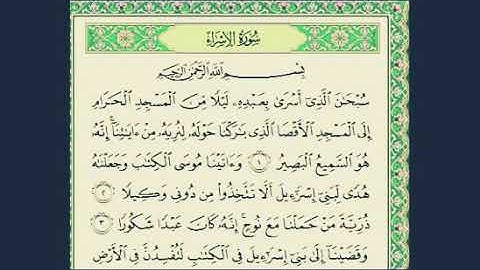 سُورَةُ الإِسْرَاءِ
بِسْمِ اللَّهِ الرَّحْمَٰنِ الرَّحِيمِ
سُبْحَٰنَ ٱلَّذِىٓ أَسْرَىٰ بِعَبْدِهِۦ لَيْلًا مِّنَ ٱلْمَسْجِدِ ٱلْحَرَامِ
إِلَى ٱلْمَسْجِدِ ٱلْأَقْصَا ٱلَّذِى بَٰرَكْنَا حَوْلَهُۥ لِنُرِيَهُۥ مِنْ ءَايَٰتِنَآ ۚ إِنَّهُۥ
هُوَ ٱلسَّمِيعُ ٱلْبَصِيرُ ١ وَءَاتَيْنَا مُوسَى ٱلْكِتَٰبَ وَجَعَلْنَٰهُ
هُدًى لِّبَنِىٓ إِسْرَٰٓءِيلَ أَلَّا تَتَّخِذُوا۟ مِن دُونِى وَكِيلًا ٢
ذُرِّيَّةَ مَنْ حَمَلْنَا مَعَ نُوحٍ ۚ إِنَّهُۥ كَانَ عَبْدًا شَكُورًا ٣
وَقَضَيْنَآ إِلَىٰ بَنِىٓ إِسْرَٰٓءِيلَ فِى ٱلْكِتَٰبِ لَتُفْسِدُنَّ فِى ٱلْأَرْضِ